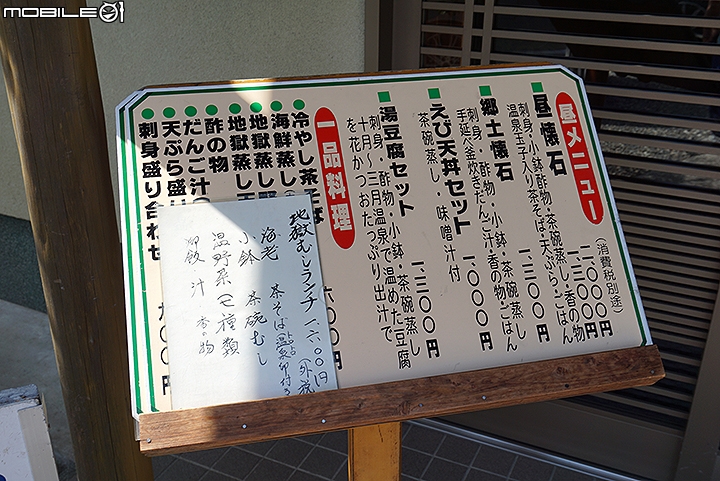 MOBILE01
昼メニュー
(消費税別途)
■昼懐石
二、〇〇〇円
刺身・小鉢・酢物・茶碗蒸し・香の物
温泉玉子入り茶そば・天ぷら・ごはん
■郷土懐石
一、三〇〇円
刺身・酢物・小鉢・茶碗蒸し
手延べ釜炊きだんご汁・香の物・ごはん
■えび天丼セット
一、〇〇〇円
茶碗蒸し・味噌汁付
■湯豆腐セット
一、三〇〇円
刺身・酢物・小鉢・茶碗蒸し
十月〜三月温泉で温めた豆腐
を花かつおたっぷり出汁で
一品料理
●冷やし茶そば
●海鮮蒸し
●地獄蒸し
●地獄蒸し
●酢の物
●だんご汁
●天ぷら盛り
●刺身盛り合わせ
六〇〇円
九〇〇円
地獄むしランチ 一、六〇〇円
(外税)
茶そば温泉卵付き
海老 茶碗むし
小鉢
温野菜(七種類)
御飯 汁 香の物